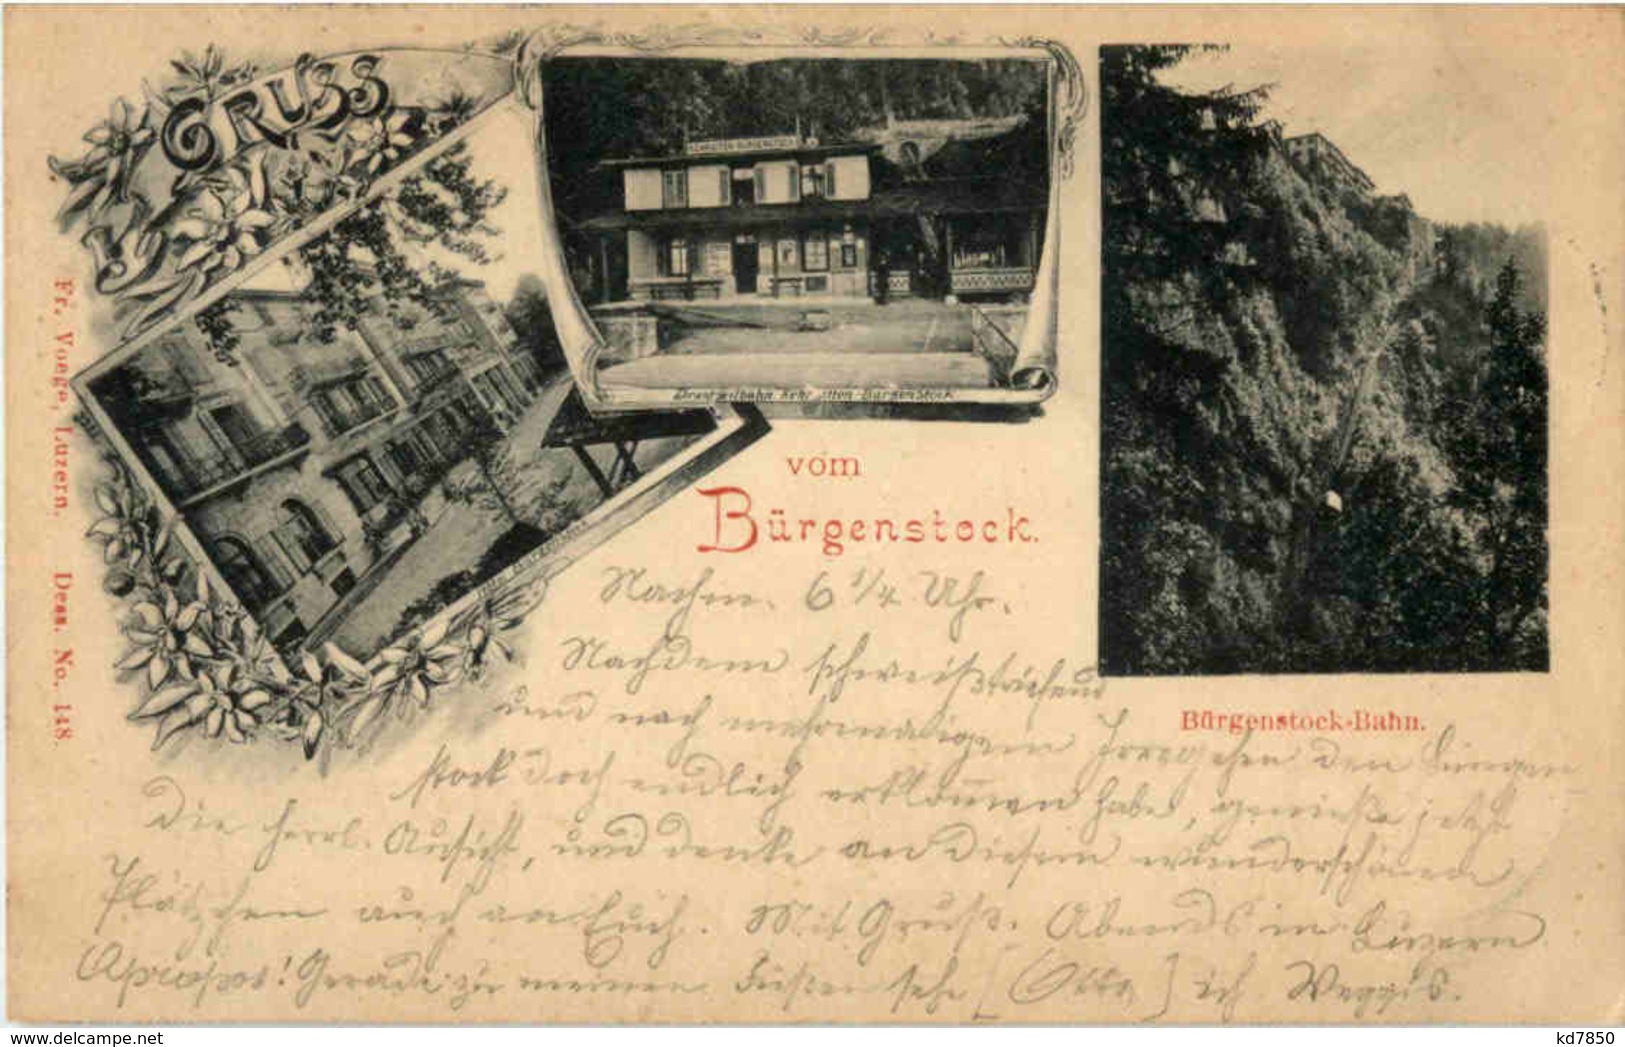 GRUSS
KEHRSITEN-BÜRGENSTOCK
Drahtseilbahn Kehrsiten-Bürgenstock
vom
Bürgenstock.
Bürgenstock-Bahn.
Fr. Voege, Luzern. Dess. No. 148.
Nachm. 6 1/4 Uhr.
Nachdem schweißtriefend
und nach mehrmaligem Irregehen den Bürgen
stock doch endlich erklommen habe, genieße jetzt
die herrl. Aussicht, und denke an diesem wunderschönen
Plätzchen auch an Euch. Mit Gruß. Abends in Luzern
Apropos! Gerade zu meinen Füßen sehe [Otto] ich Weggis.
delcampe.net
kd7850